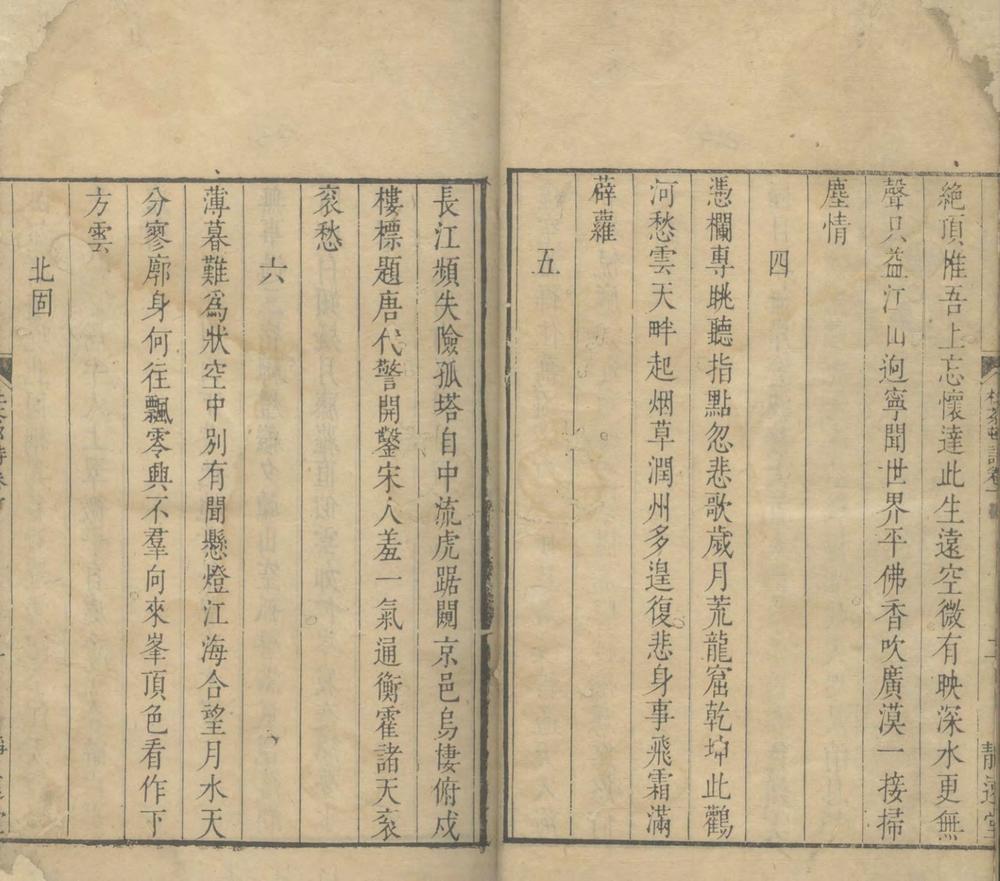 絶頂惟吾上忘懷達此生遠空微有映深水更無
聲只益江山逈寧聞世界平佛香吹廣漠一接掃
塵情
四
憑欄專眺聽指點忽悲歌歲月荒龍窟乾坤此鸛
河愁雲天畔起烟草潤州多遑復悲身事飛霜滿
薜蘿
五
長江頻失險孤塔自中流虎踞闕京邑烏棲俯戍
樓標題唐代警開鑿宋人羞一氣通衡霍諸天衮
衮愁
六
薄暮難為狀空中別有聞懸燈江海合望月水天
分寥廓身何往飄零興不羣向來峯頂色看作下
方雲
北固
靜遠堂